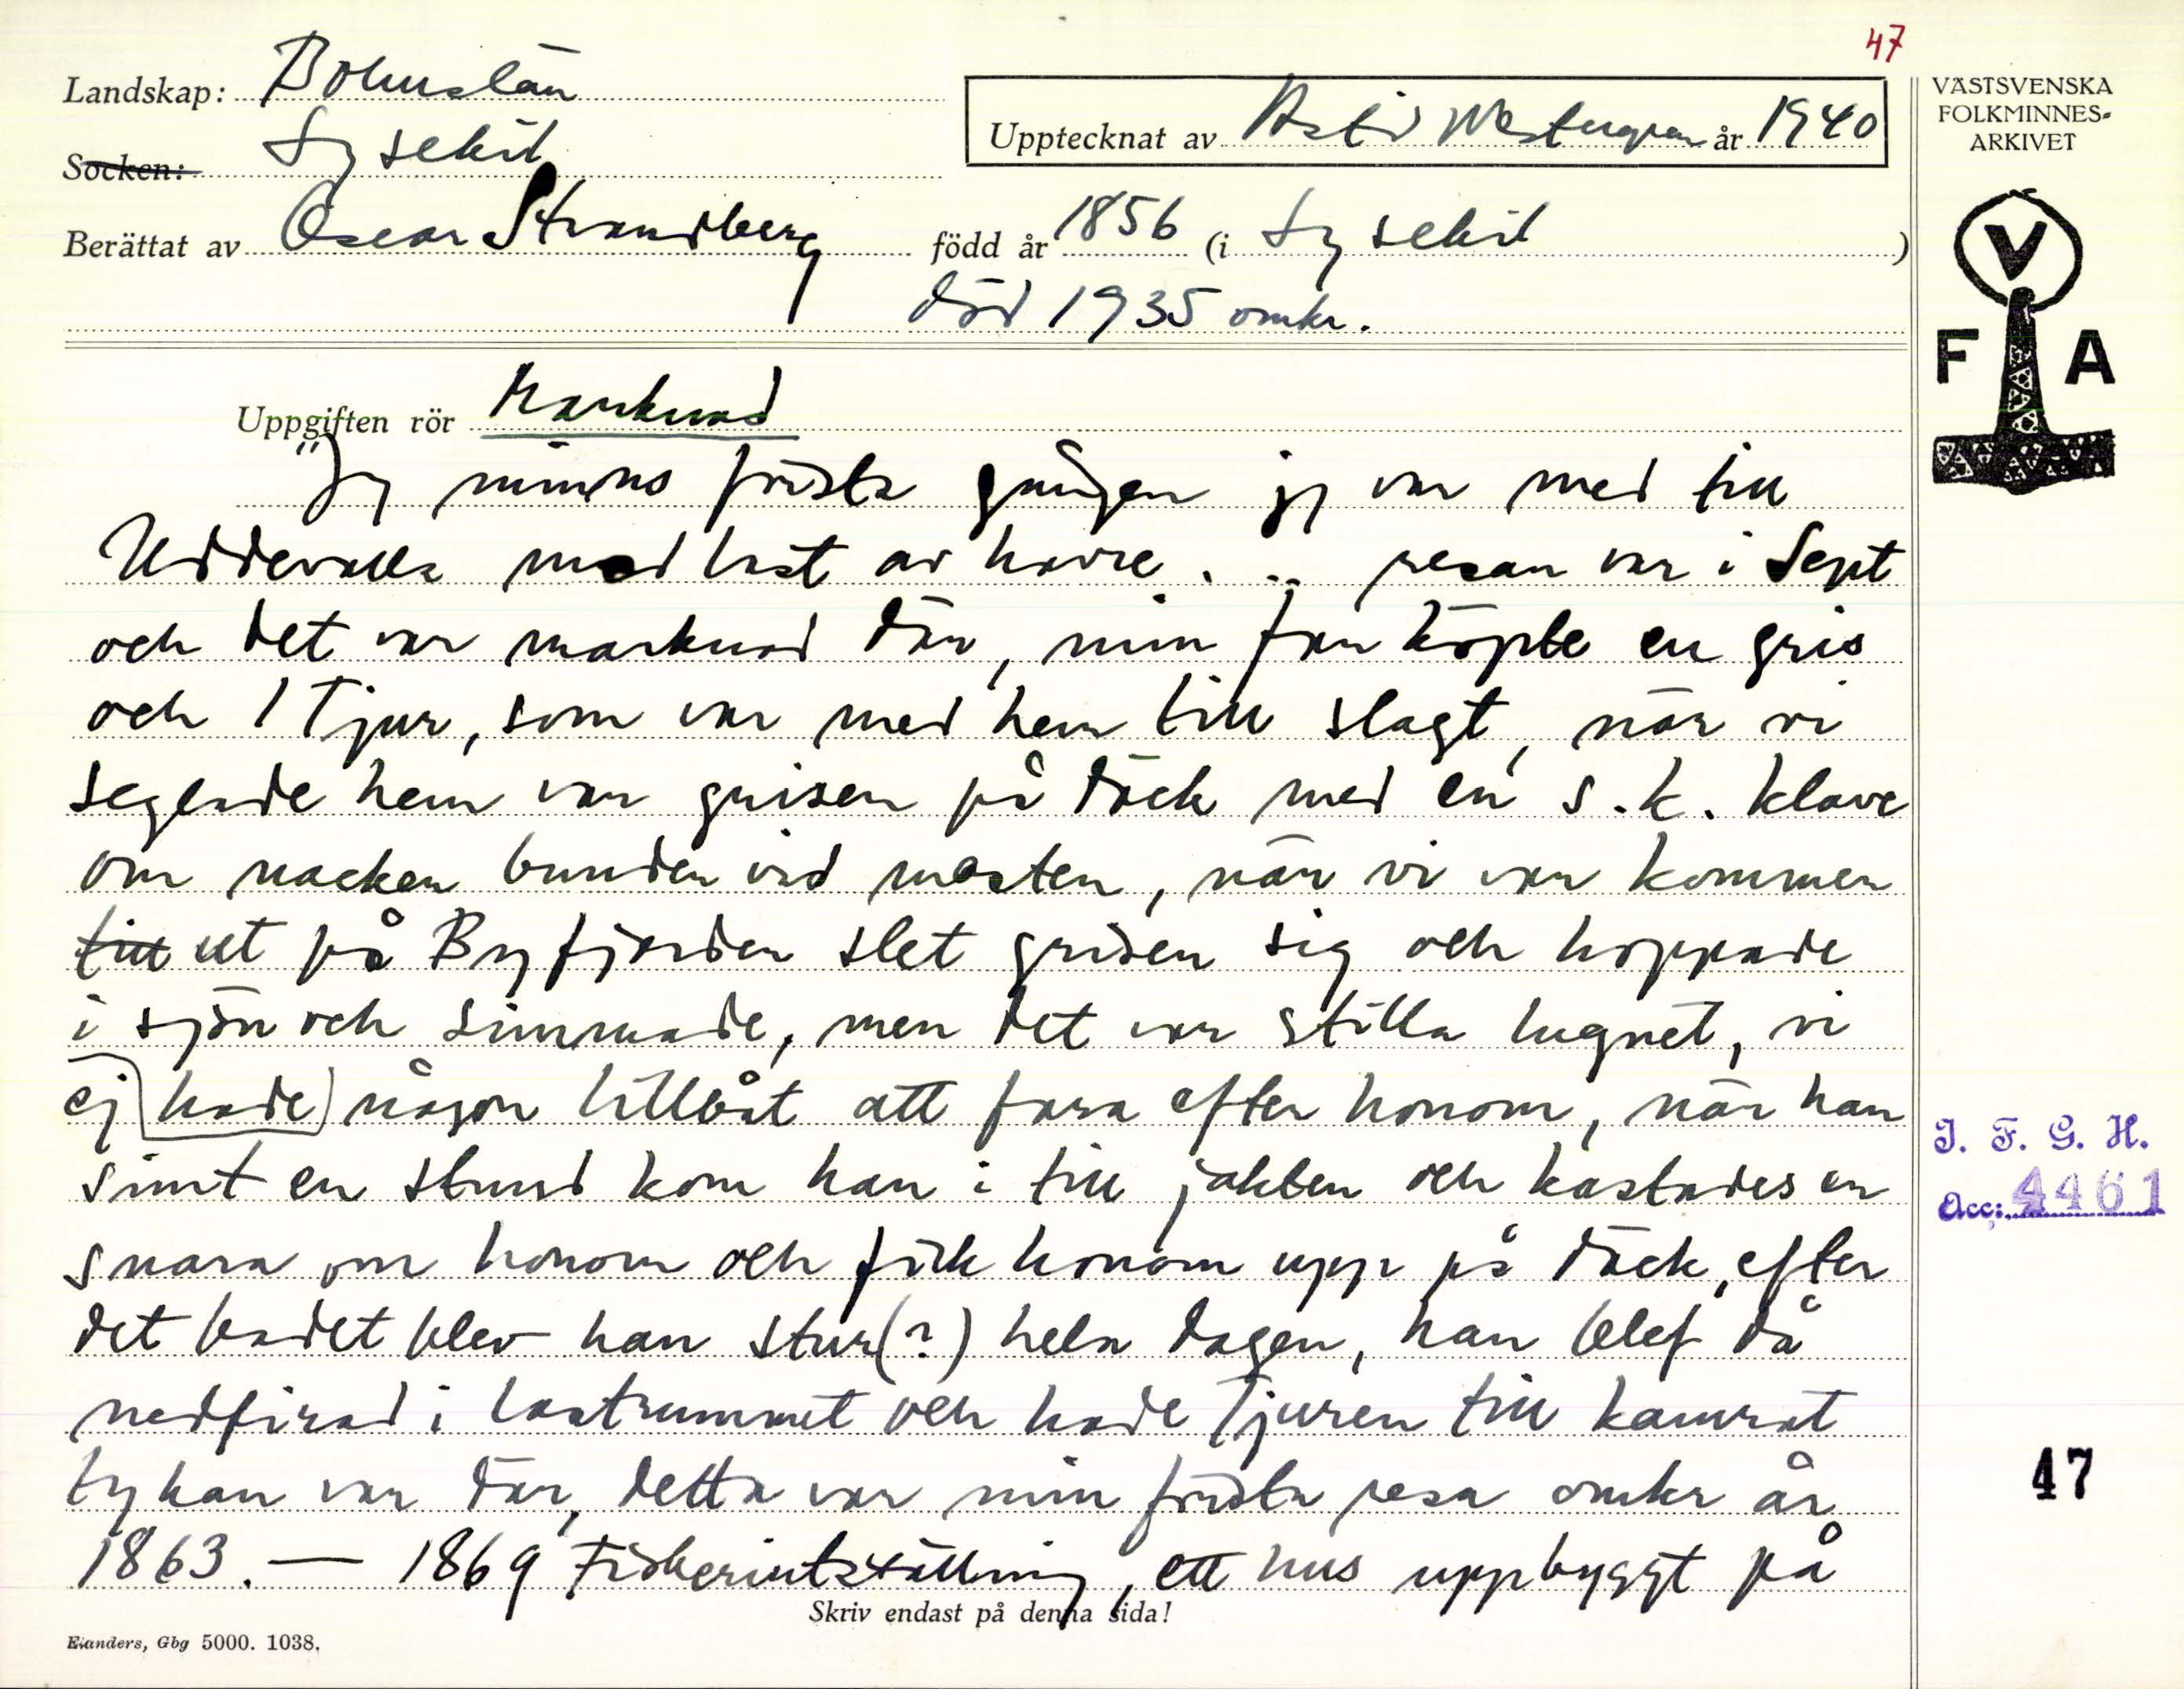 47
Landskap: Bohuslän
Socken: Lysekil
Upptecknat av Astrid Westergren år 1940
Berättat av Oscar Strandberg född år 1856 (i Lysekil)
död 1935 omkr.
VÄSTSVENSKA
FOLKMINNES-
ARKIVET
V
F A
Uppgiften rör Marknad
"Jag minns första gången jag var med till
Uddevalla med last av havre. .. resan var i Sept
och det var marknad där, min far köpte en gris
och 1 Tjur, som var med hem till slagt, när vi
seglade hem var grisen på däck med en s.k. klave
om nacken bunden vid masten, när vi var kommen
till ut på Byfjorden slet grisen sig och hoppade
i sjön och simmade, men det var stilla lugnet, vi
ej hade någon lillbåt att fara efter honom, när han
simt en stund kom han i till jakten och kastades en
snara om honom och fick honom upp på däck, efter
det badet blev han stur(?) hela dagen, han blef då
nedfirad i lastrummet och hade Tjuren till kamrat
ty han var där, detta var min första resa omkr år
1863. — 1869 Fiskeriutställning, ett hus uppbyggt på
Skriv endast på denna sida!
Elanders, Gbg 5000. 1038.
I. F. G. H.
Acc: 4461
47